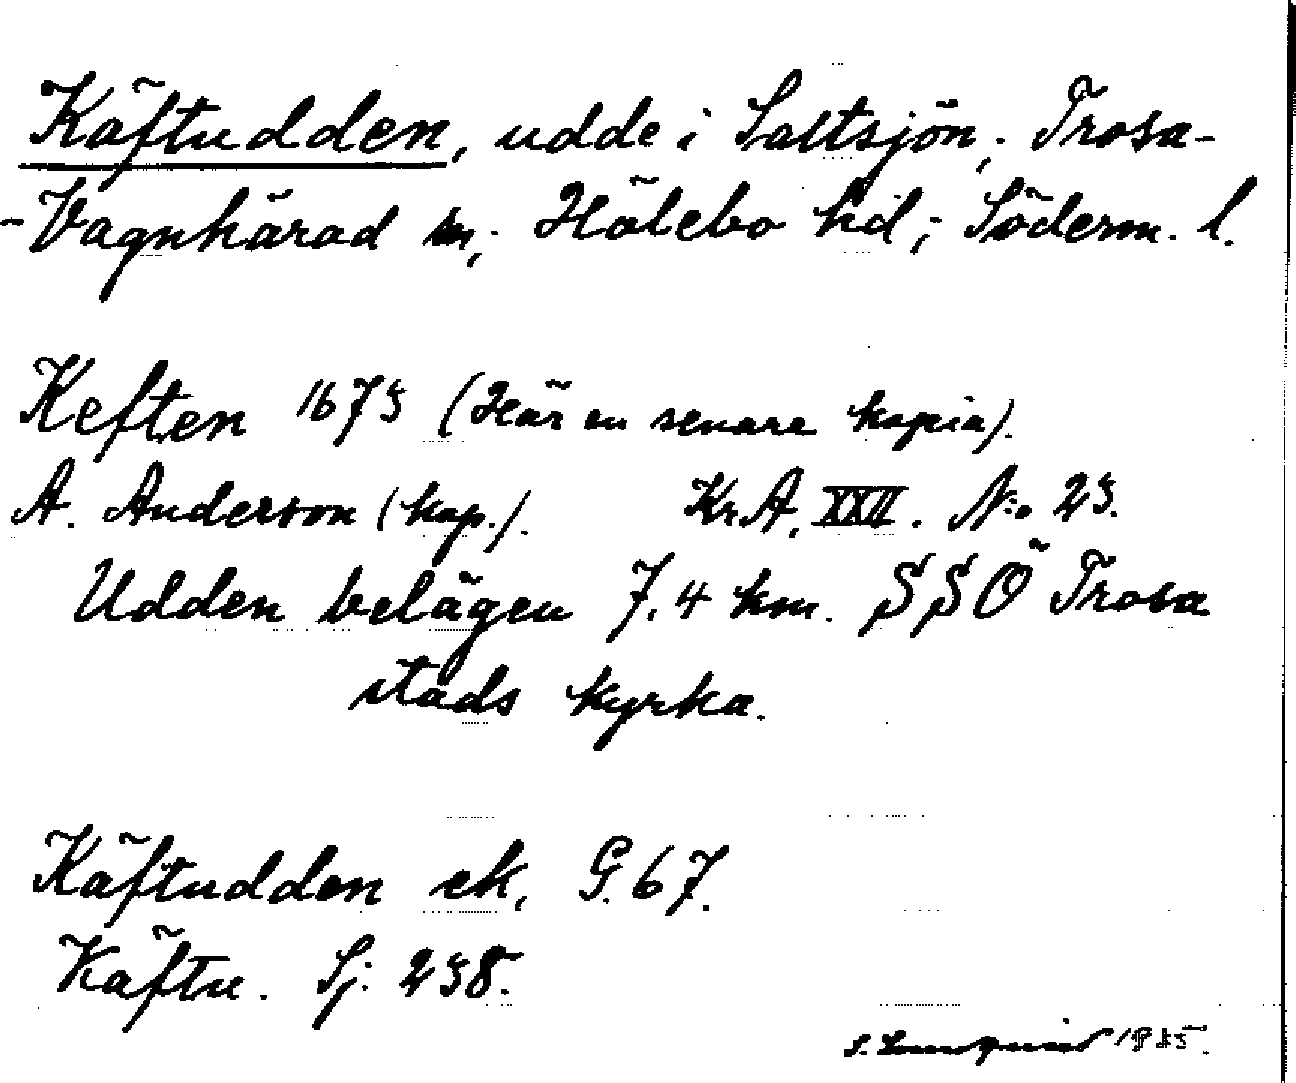 Käftudden, udde i Saltsjön, Trosa-
-Vagnhärad sn, Hölebo hd, Söderm. l.
Keften 1673 (Här en senare kopia).
A. Anderson (kop.). Kr.A. XXII. N:o 23.
Udden belägen 7.4 km. SSÖ Trosa
stads kyrka.
Käftudden ek, G. 67.
Käftu. Sj. 238.
S. Lundquist 1935.